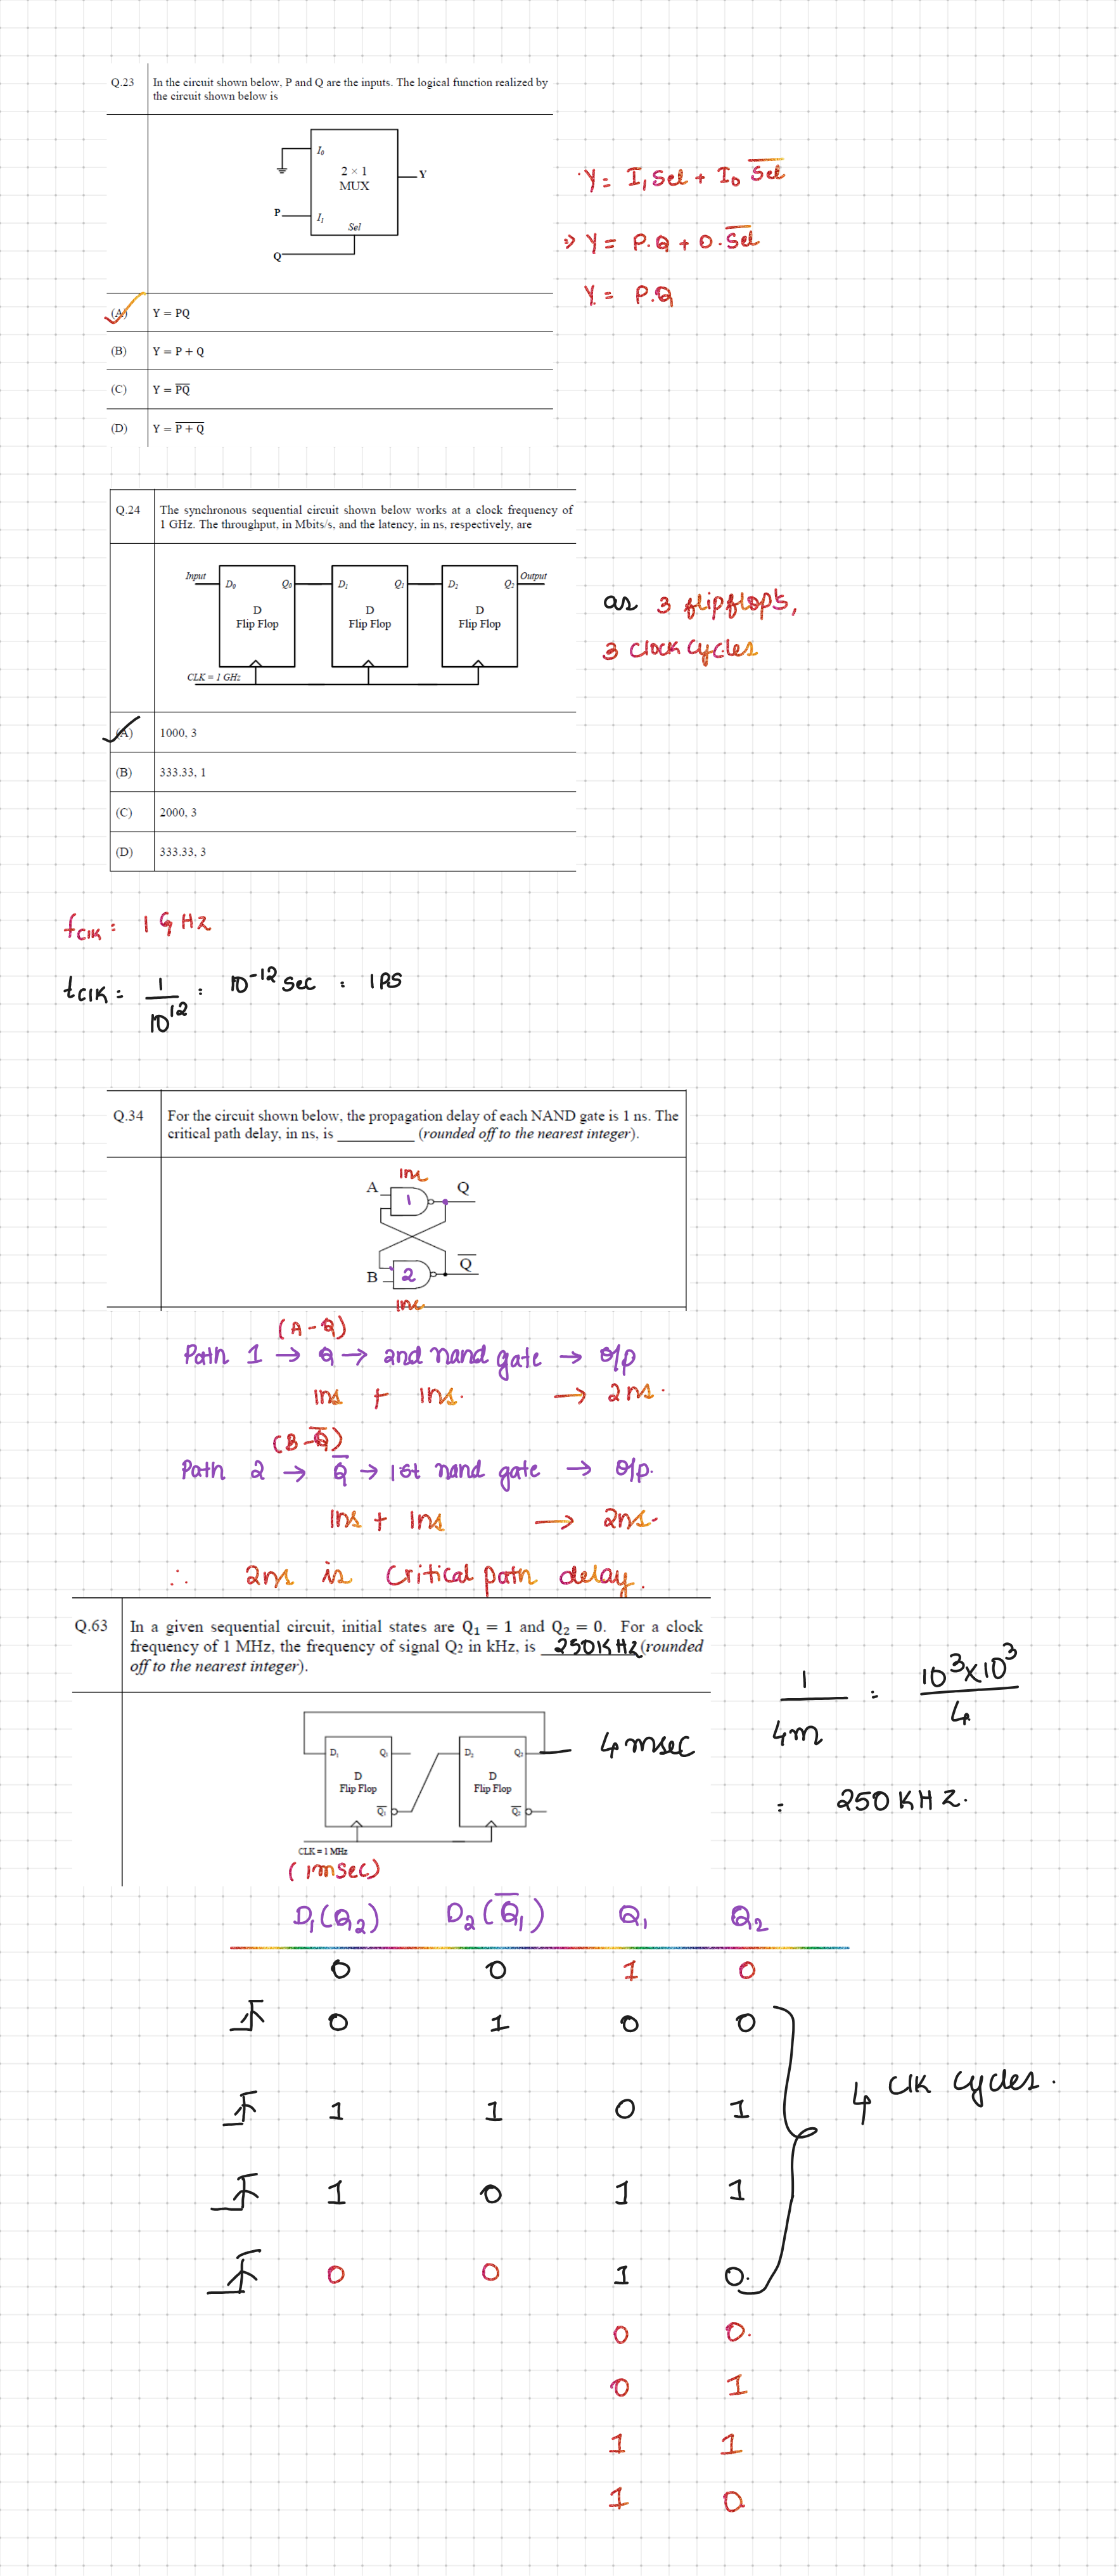 Q.23 In the circuit shown below, P and Q are the inputs. The logical function realized by
the circuit shown below is
I0
2 × 1
MUX
Y
P
I1
Sel
Q
Y = I1 Sel + I0 \overline{Sel}
⇒ Y = P.Q + 0.\overline{Sel}
Y = P.Q
(A) Y = PQ
(B) Y = P + Q
(C) Y = \overline{PQ}
(D) Y = \overline{P + Q}
Q.24 The synchronous sequential circuit shown below works at a clock frequency of
1 GHz. The throughput, in Mbits/s, and the latency, in ns, respectively, are
Input D0 Q0 D1 Q1 D2 Q2 Output
D D D
Flip Flop Flip Flop Flip Flop
CLK = 1 GHz
as 3 flipflop's,
3 clock cycles
(A) 1000, 3
(B) 333.33, 1
(C) 2000, 3
(D) 333.33, 3
fClK = 1 GHz
tClK = 1/10^12 = 10^-12 sec = 1 PS
Q.34 For the circuit shown below, the propagation delay of each NAND gate is 1 ns. The
critical path delay, in ns, is __________ (rounded off to the nearest integer).
1ns
A 1 Q
B 2 \overline{Q}
1ns
(A-Q)
Path 1 → Q → 2nd nand gate → o/p
1ns + 1ns. → 2ns.
(B-\overline{Q})
Path 2 → \overline{Q} → 1st nand gate → o/p.
1ns + 1ns → 2ns.
∴ 2ns is critical path delay.
Q.63 In a given sequential circuit, initial states are Q1 = 1 and Q2 = 0. For a clock
frequency of 1 MHz, the frequency of signal Q2 in kHz, is 250KHz (rounded
off to the nearest integer).
D1 Q1 D2 Q2
D D
Flip Flop Flip Flop
\overline{Q1} \overline{Q2}
CLK = 1 MHz
(1msec)
4msec
1/4m = 10^3×10^3/4
= 250 KHZ.
D1(Q2) D2(\overline{Q}1) Q1 Q2
0 0 1 0
0 1 0 0
1 1 0 1
1 0 1 1
0 0 1 0.
4 ClK cycles.
0 0.
0 1
1 1
1 0